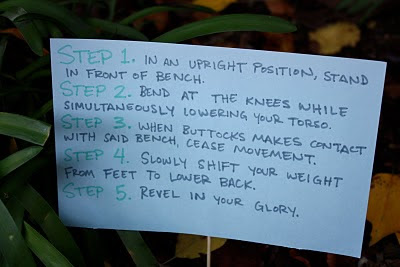 STEP 1. IN AN UPRIGHT POSITION, STAND
IN FRONT OF BENCH.
STEP 2. BEND AT THE KNEES WHILE
SIMULTANEOUSLY LOWERING YOUR TORSO.
STEP 3. WHEN BUTTOCKS MAKES CONTACT
WITH SAID BENCH, CEASE MOVEMENT.
STEP 4. SLOWLY SHIFT YOUR WEIGHT
FROM FEET TO LOWER BACK.
STEP 5. REVEL IN YOUR GLORY.